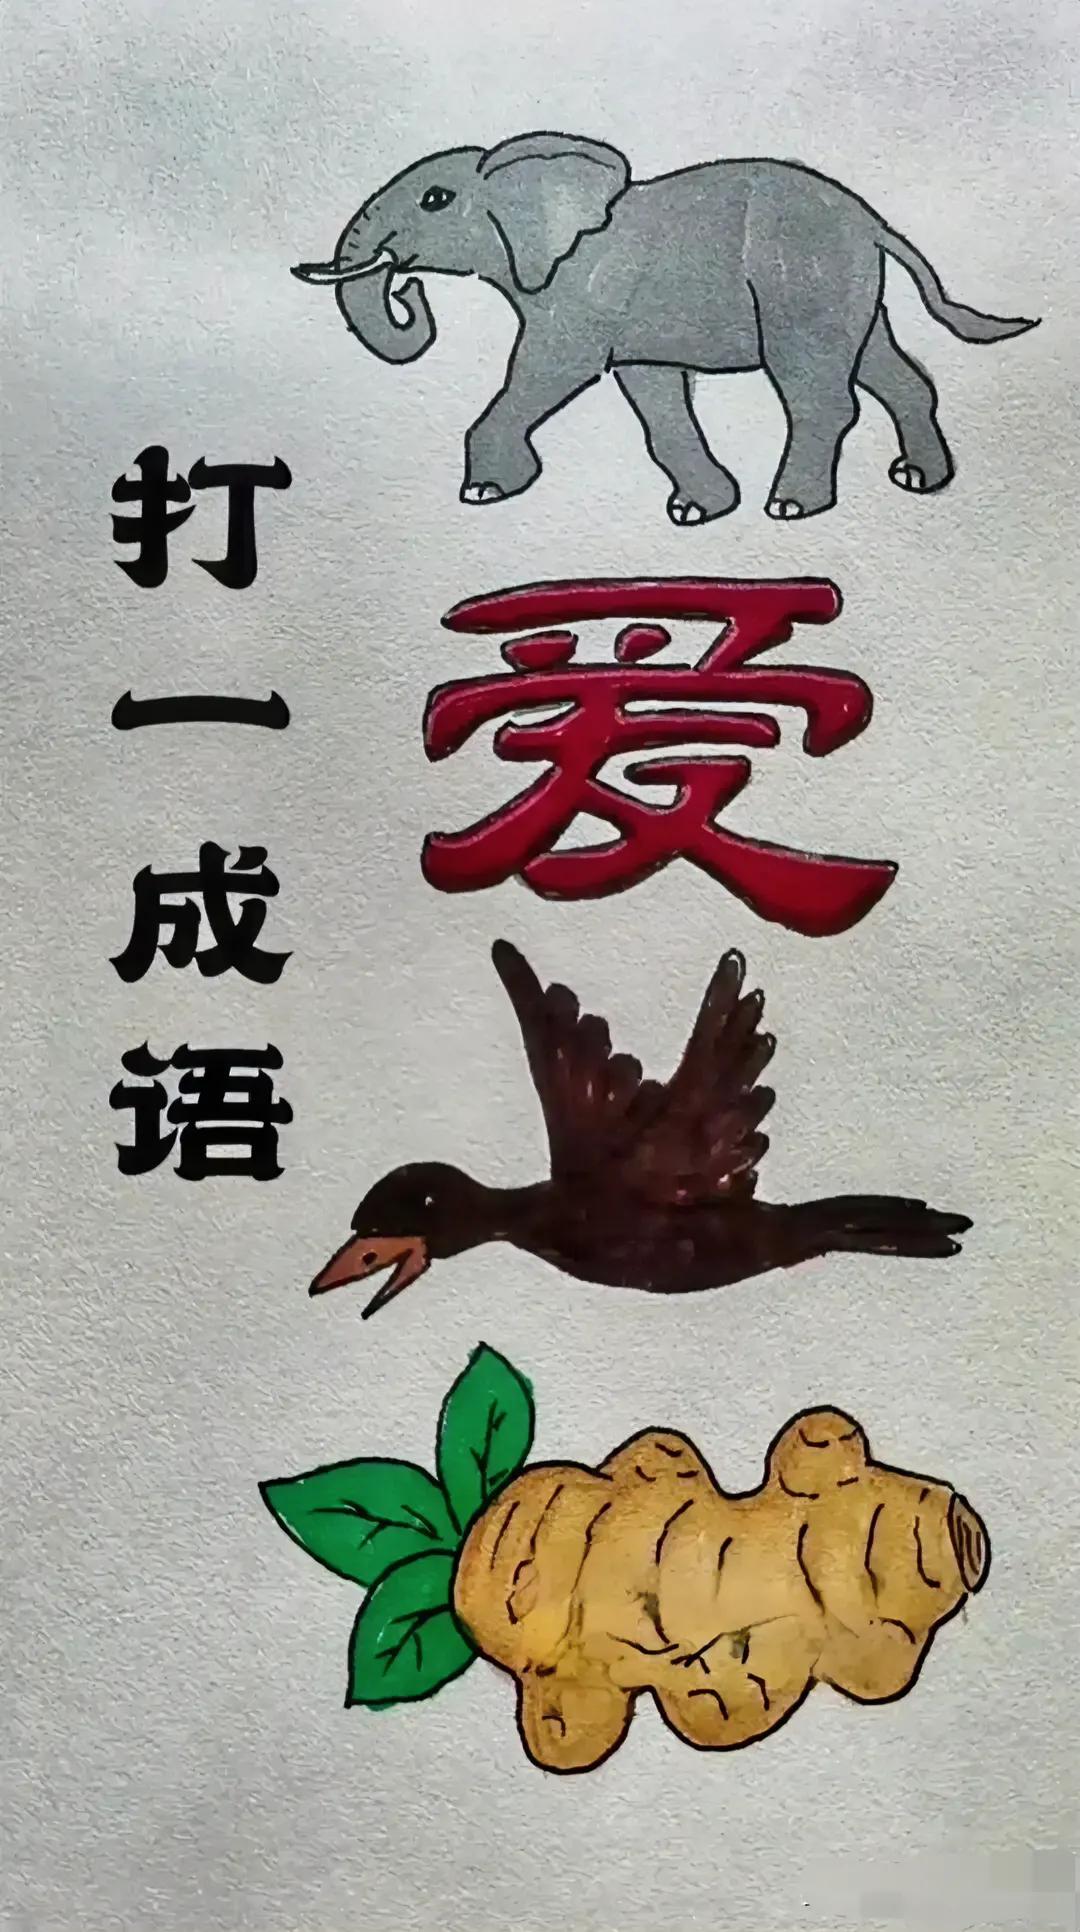 打一成语
爱